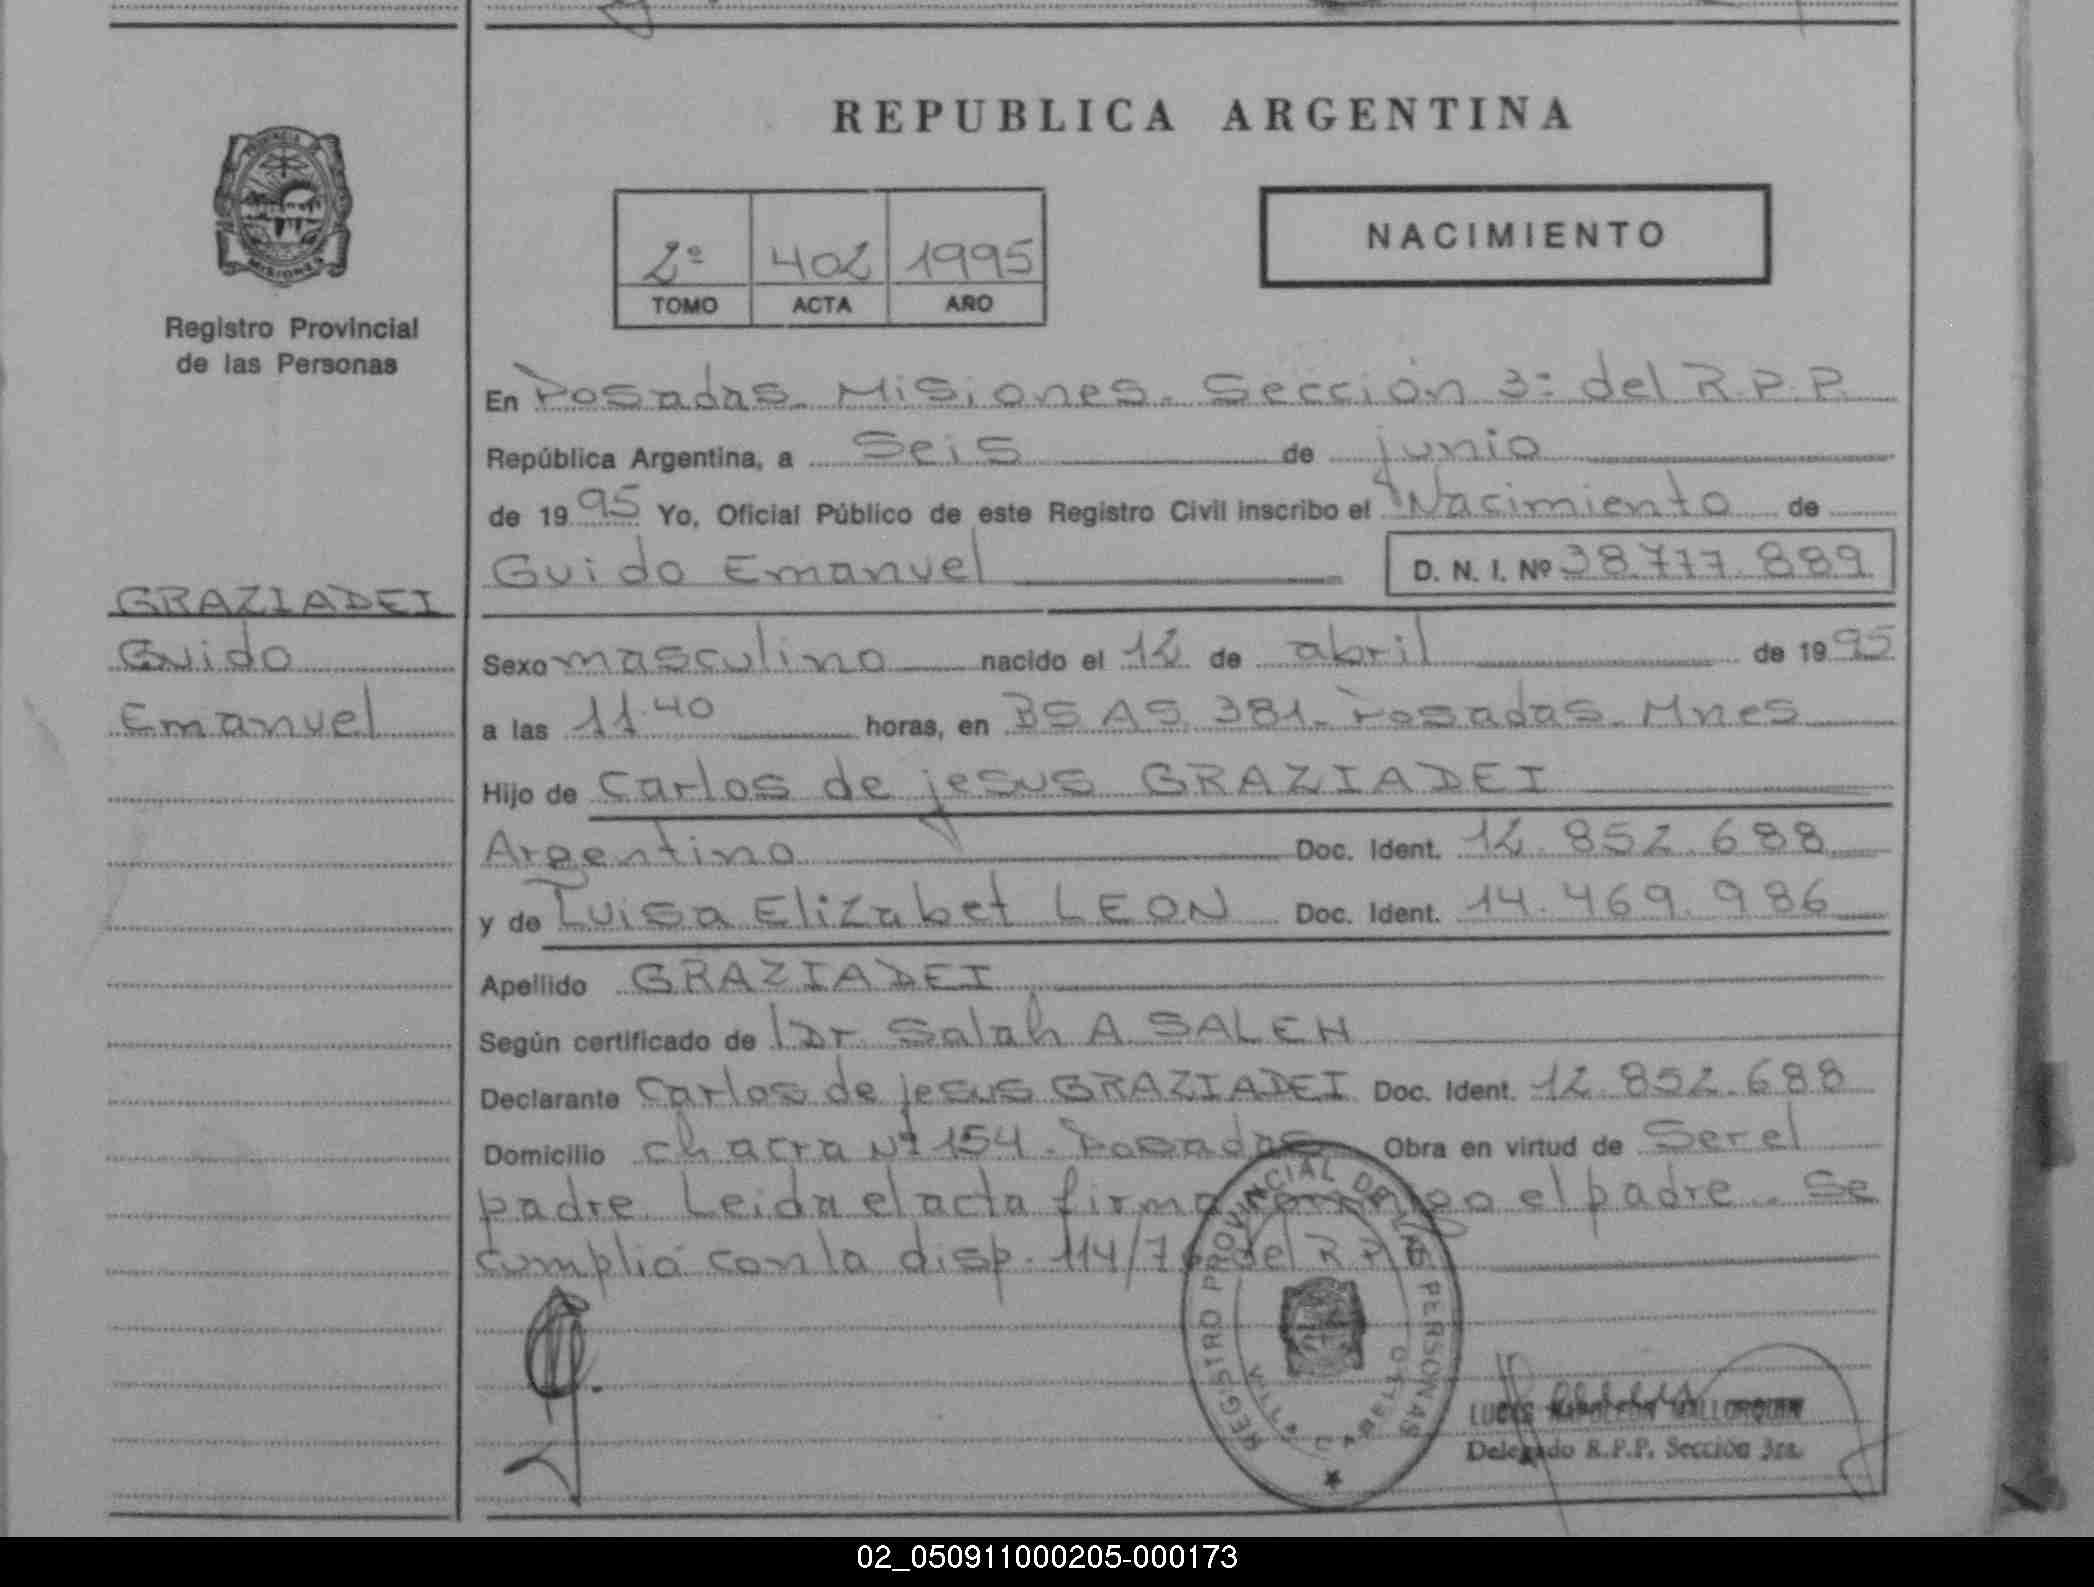 REPUBLICA ARGENTINA
PROVINCIA
MISIONES
Registro Provincial
de las Personas
2º 402 1995
TOMO ACTA AÑO
NACIMIENTO
En Posadas. Misiones. Sección 3ª del R.P.P.
República Argentina, a Seis de junio
de 1995 Yo, Oficial Público de este Registro Civil inscribo el Nacimiento de
Guido Emanuel D. N. I. Nº 38.717.889
GRAZIADEI
Guido
Emanuel
Sexo masculino nacido el 12 de abril de 1995
a las 11.40 horas, en BS AS. 381. Posadas. Mnes
Hijo de Carlos de jesus GRAZIADEI
Argentino Doc. Ident. 12.852.688
y de Luisa Elizabet LEON Doc. Ident. 14.469.986
Apellido GRAZIADEI
Según certificado de Dr. Salah A. SALEH
Declarante Carlos de jesus GRAZIADEI Doc. Ident. 12.852.688
Domicilio chacra Nº 154. Posadas Obra en virtud de Ser el
padre. Leida el acta firma conmigo el padre. Se
cumplió con la disp. 114/76 del R.P.P.
REGISTRO PROVINCIAL DE LAS PERSONAS
VILLA
LUCIS NAPOLEON MALLORQUIN
Delegado R.P.P. Sección 3ra.
02_050911000205-000173